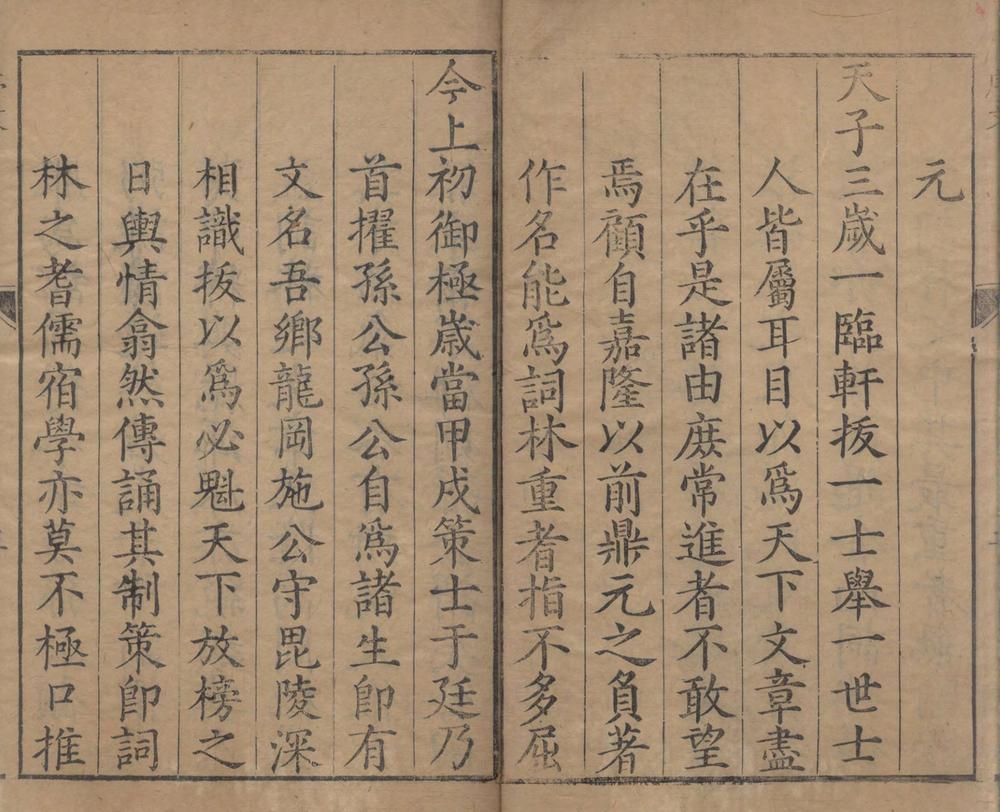 元
天子三歲一臨軒拔一士舉一世士
人皆屬耳目以爲天下文章盡
在乎是諸由庶常進者不敢望
焉顧自嘉隆以前鼎元之負著
作名能爲詞林重者指不多屈
今上初御極歲當甲戌策士于廷乃
首擢孫公孫公自爲諸生卽有
文名吾鄉龍岡施公守毘陵深
相識拔以爲必魁天下放榜之
日輿情翕然傳誦其制策卽詞
林之耆儒宿學亦莫不極口推